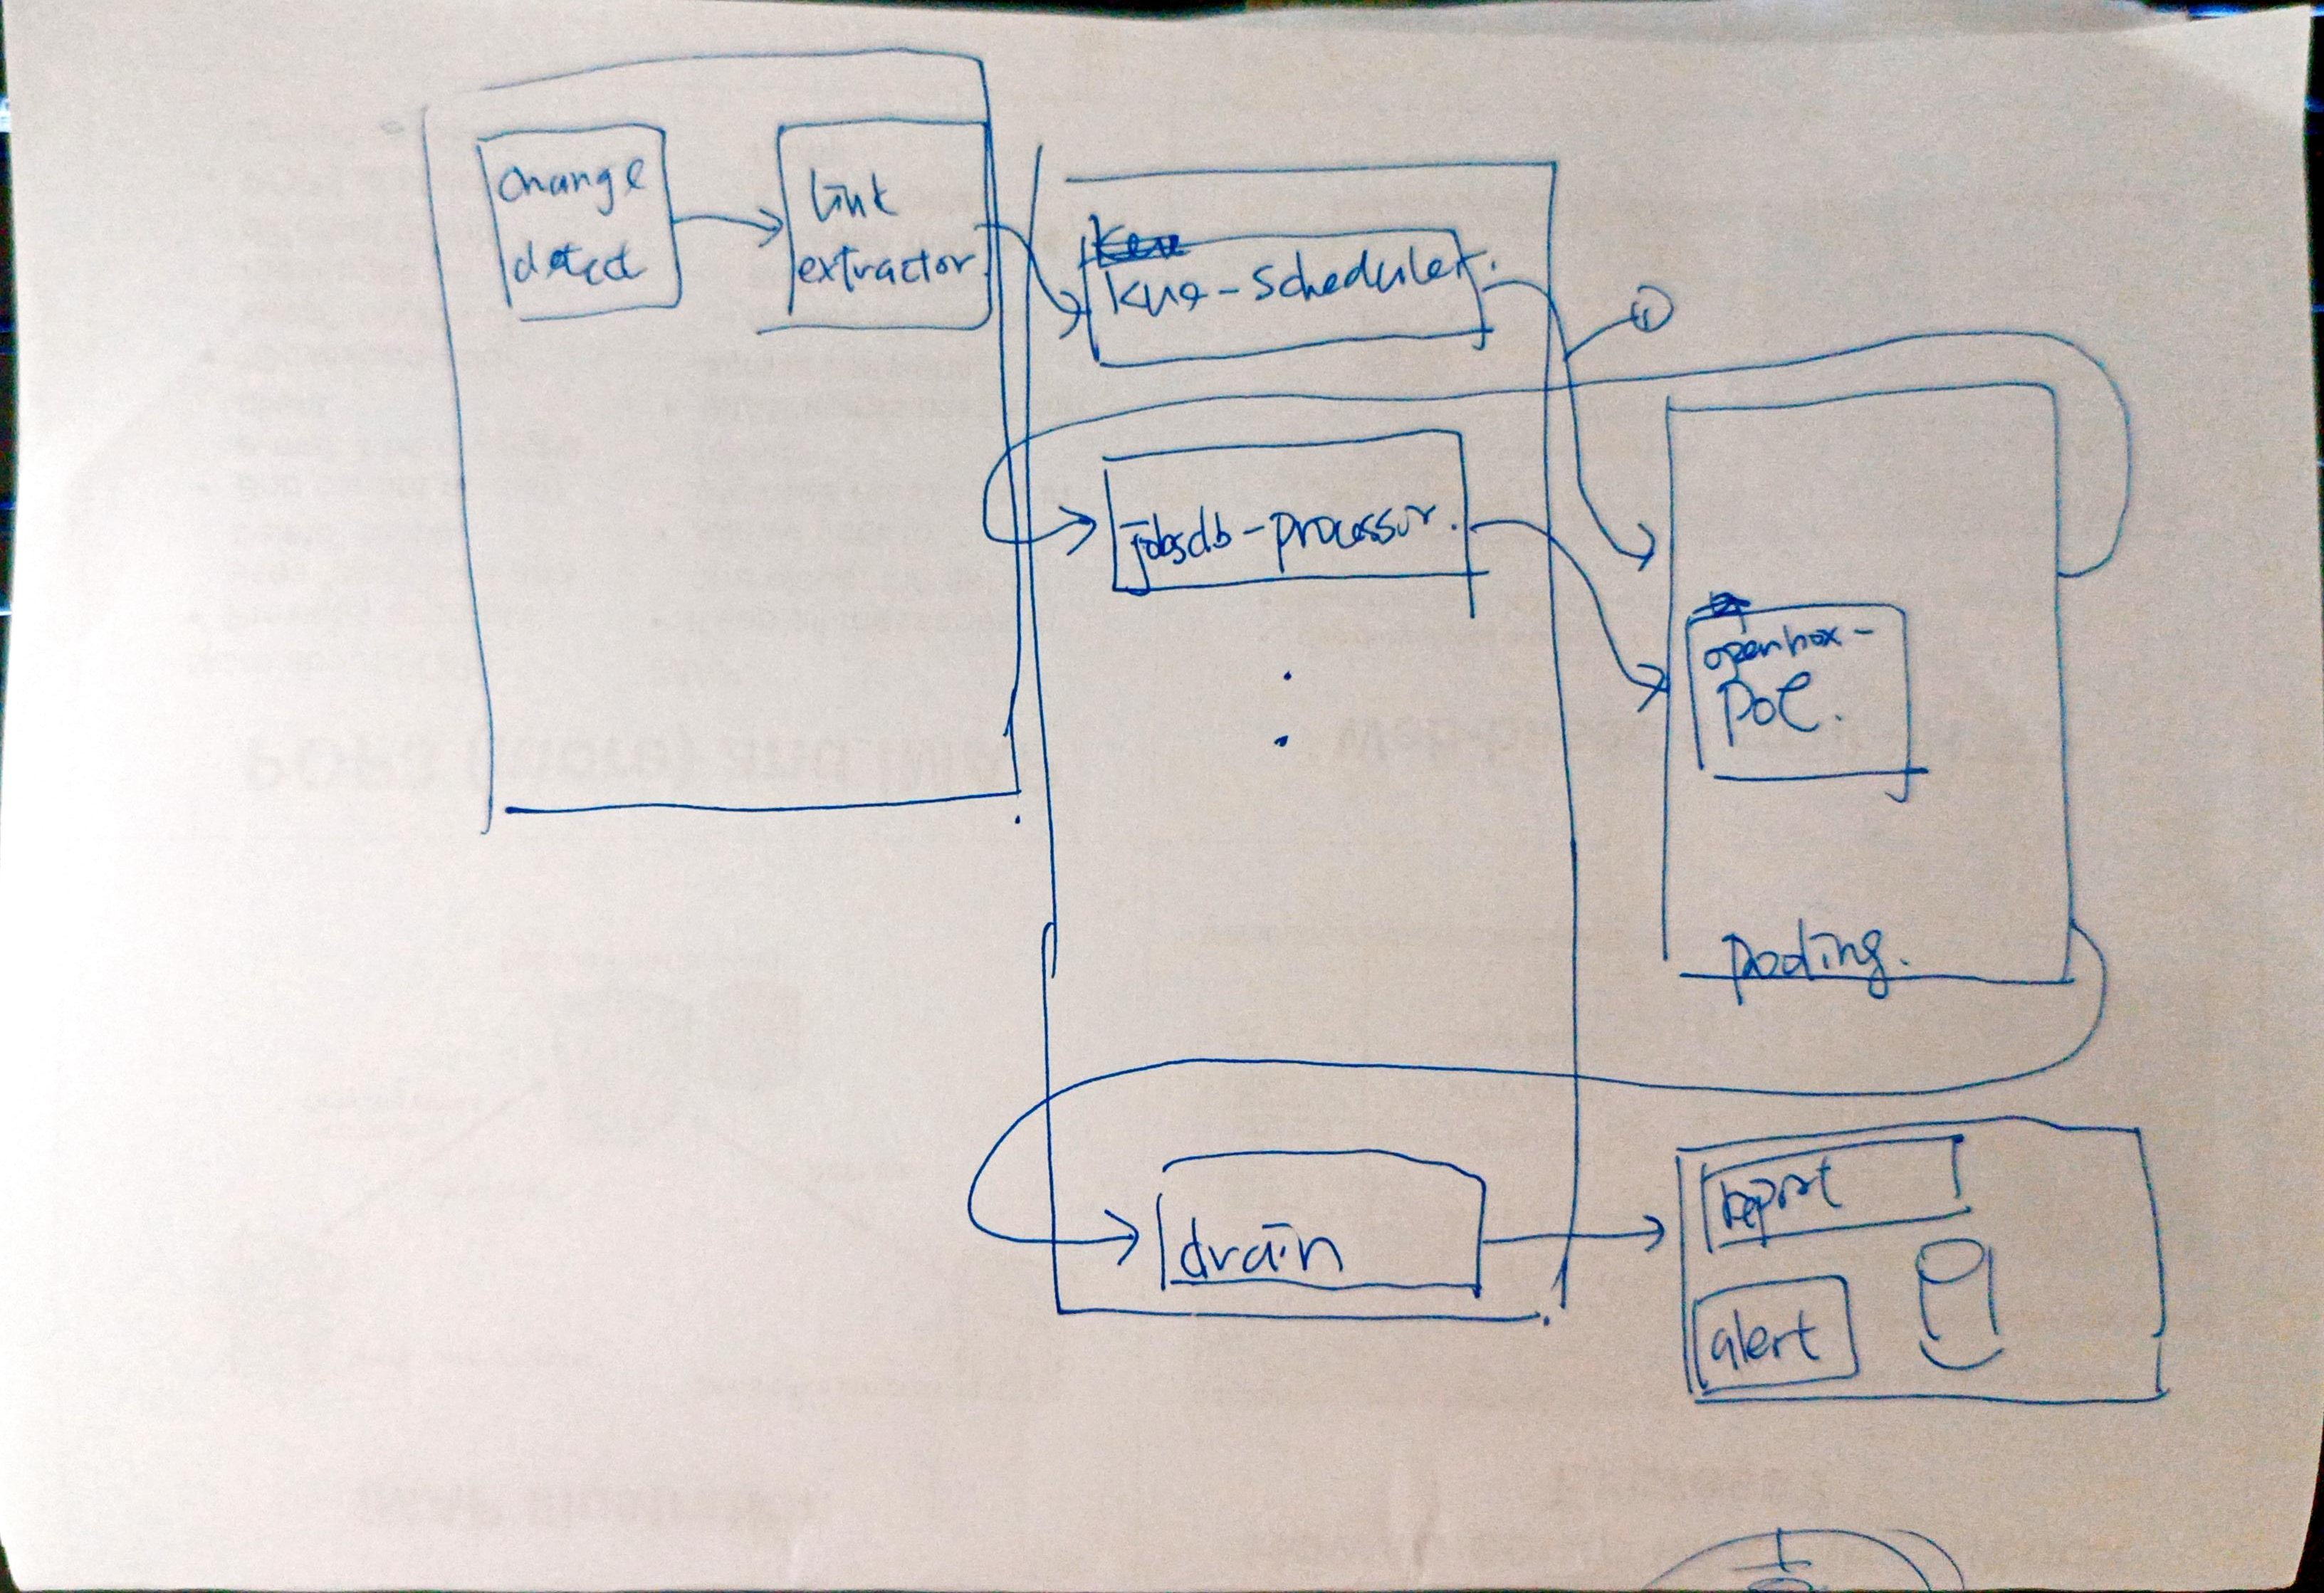 change
detect
link
extractor
kue-scheduler.
1
jobsdb-processor.
openbox-
poc.
pooling.
drain
report
alert